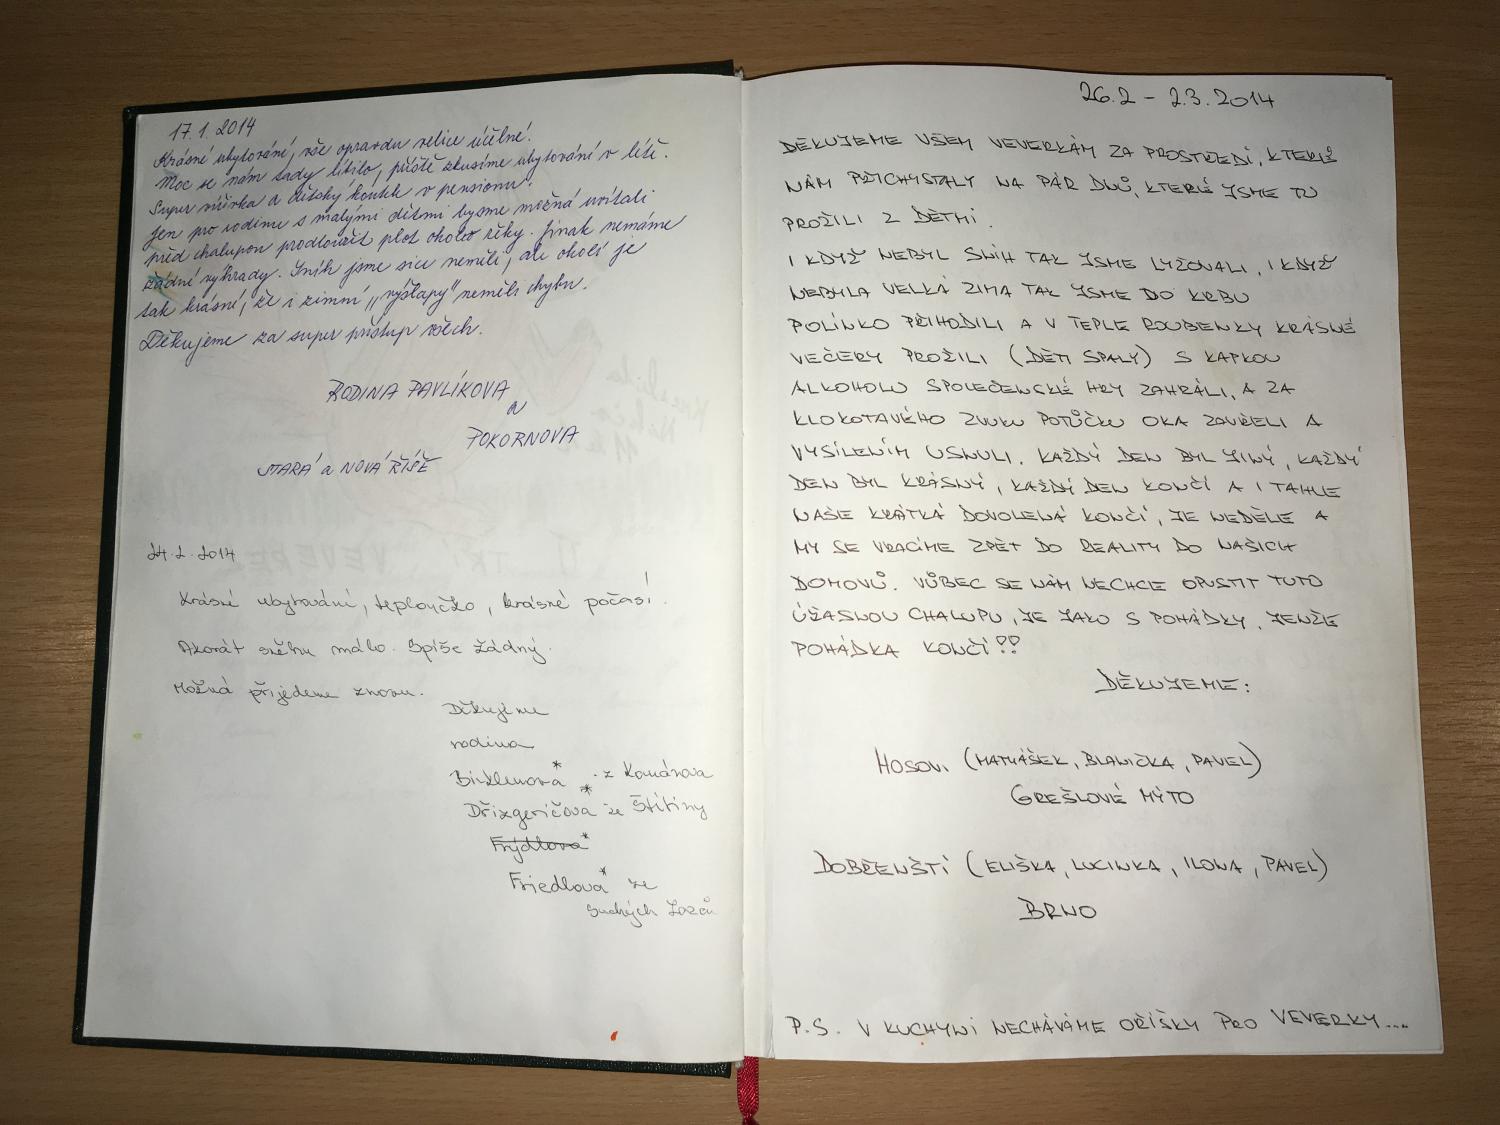 17.1.2014
Krásné ubytování, vše opravdu velice účelné!
Moc se nám tady líbilo, příště zkusíme ubytování v létě.
Super vířivka a dětský koutek v pensionu!
Jen pro rodinu s malými dětmi bysme možná uvítali
před chalupou prodloužit plot okolo řeky. Jinak nemáme
žádné výhrady. Sníh jsme sice neměli, ale okolí je
tak krásné, že i zimní „výšlapy" neměli chybu.
Děkujeme za super přístup všech.
RODINA PAVLÍKOVA
a
POKORNOVA
STARÁ a NOVÁ ŘÍŠE
24.2.2014
Krásné ubytování, teploučko, krásné počasí!
Akorát sněhu málo. Spíše žádný.
Možná přijedeme znovu.
Děkujeme
rodina
Birklenova* z Komárova
Dřizgevičova* ze Štítiny
Frýdlova*
Friedlova* ze
Suchých Lazců
26.2 - 2.3.2014
DĚKUJEME VŠEM VEVERKÁM ZA PROSTŘEDÍ, KTERÉ
NÁM PŘICHYSTALY NA PÁR DNŮ, KTERÉ JSME TU
PROŽILI Z DĚTMI.
I KDYŽ NEBYL SNÍH TAK JSME LYŽOVALI, I KDYŽ
NEBYLA VELKÁ ZIMA TAK JSME DO KRBU
POLÍNKO PŘIHODILI A V TEPLE ROUBENKY KRÁSNÉ
VEČERY PROŽILI (DĚTI SPALY) S KAPKOU
ALKOHOLU SPOLEČENSKÉ HRY ZAHRÁLI, A ZA
KLOKOTAVÉHO ZVUKU POTŮČKU OKA ZAVŘELI A
VYSÍLENÍM USNULI. KAŽDÝ DEN BYL JINÝ, KAŽDÝ
DEN BYL KRÁSNÝ, KAŽDÝ DEN KONČÍ A I TAHLE
NAŠE KRÁTKÁ DOVOLENÁ KONČÍ, JE NEDĚLE A
MY SE VRACÍME ZPĚT DO REALITY DO NAŠICH
DOMOVŮ. VŮBEC SE NÁM NECHCE OPUSTIT TUTO
ÚŽASNOU CHALUPU, JE JAKO S POHÁDKY, JENŽE
POHÁDKA KONČÍ??
DĚKUJEME:
HOSOVI (MATYÁŠEK, BLANIČKA, PAVEL)
GREŠLOVÉ MÝTO
DOBŘENŠTÍ (ELIŠKA, LUCINKA, ILONA, PAVEL)
BRNO
P.S. V KUCHYNI NECHÁVÁME OŘÍŠKY PRO VEVERKY....